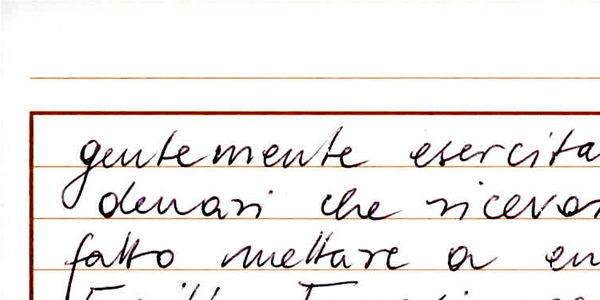 gentemente esercita
denari che ricevo
fatto mettare a en